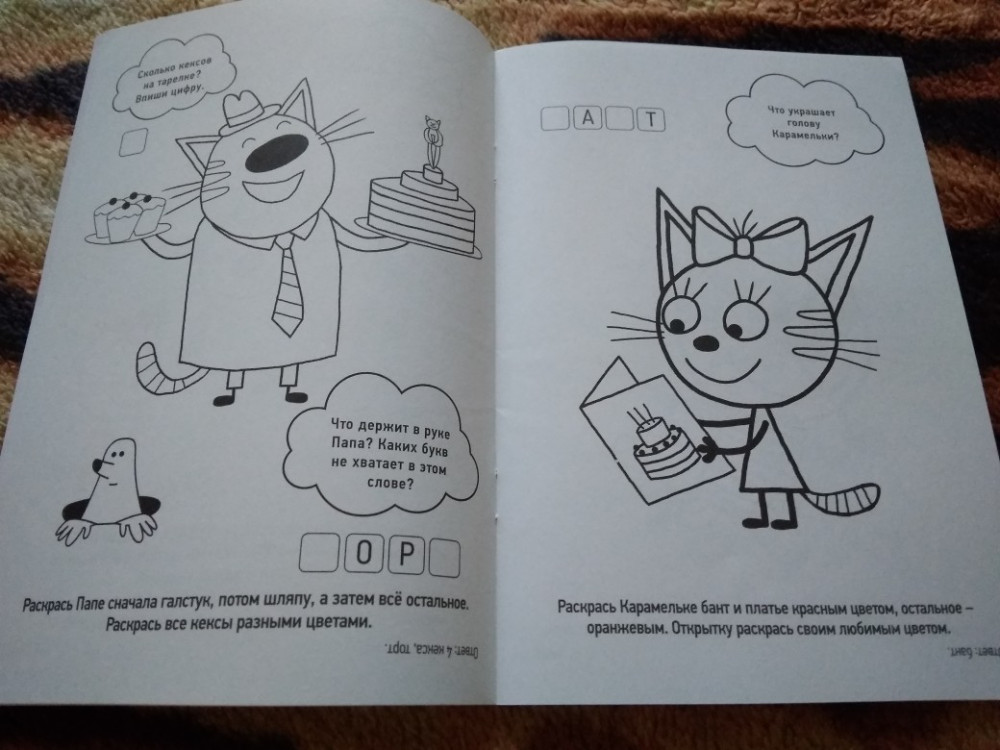 Сколько кексов
на тарелке?
Впиши цифру.
Что держит в руке
Папа? Каких букв
не хватает в этом
слове?
О Р
Раскрась Папе сначала галстук, потом шляпу, а затем всё остальное.
Раскрась все кексы разными цветами.
Ответ: 4 кекса, торт.
А Т
Что украшает
голову
Карамельки?
Раскрась Карамельке бант и платье красным цветом, остальное –
оранжевым. Открытку раскрась своим любимым цветом.
Ответ: бант.